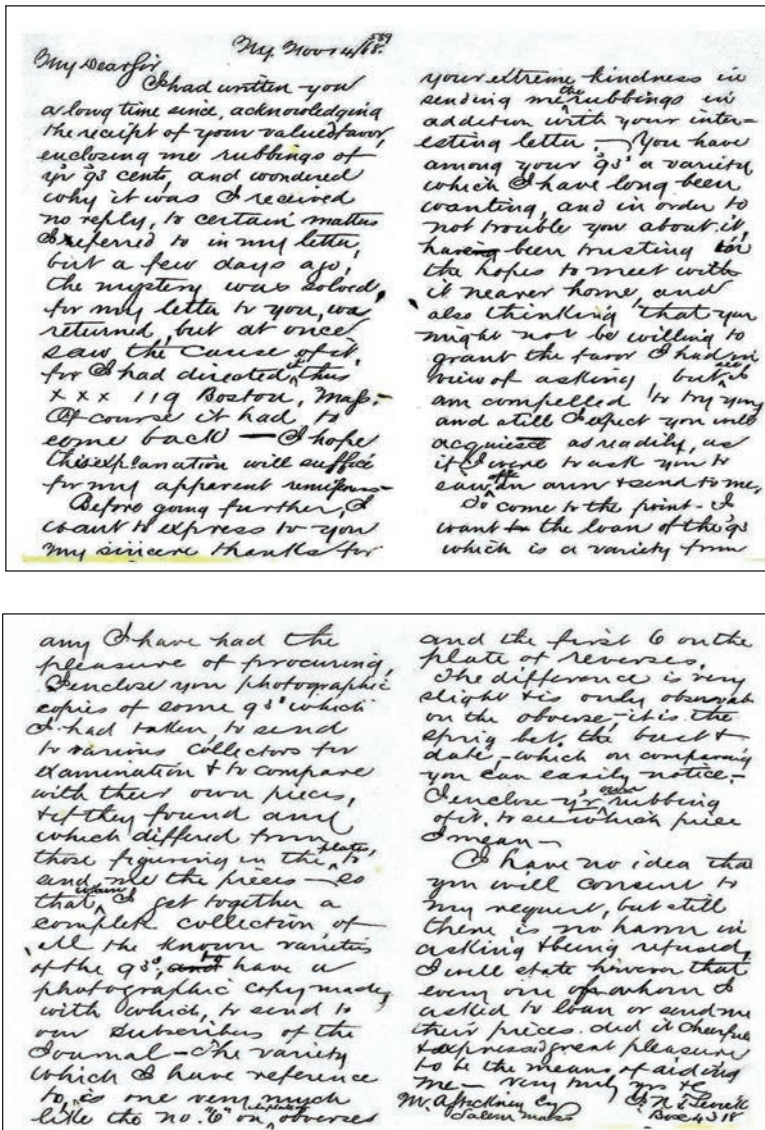 My Dear Sir
Ny. Novr 4/68.
I had written you
a long time since, acknowledging
the receipt of your valued favor,
enclosing me rubbings of
yr 93 cents, and wondered
why it was I received
no reply, to certain matters
I referred to in my letter,
but a few days ago,
the mystery was solved,
for my letter to you, was
returned, but at once
saw the cause of it,
for I had directed it thus
x x x 119 Boston, Mass.-
Of course it had to
come back — I hope
this explanation will suffice
for my apparent
Before going further, I
want to express to you
my sincere thanks for
your extreme kindness in
sending me the rubbings in
addition with your inter-
esting letter. — You have
among your 93s a variety
which I have long been
wanting, and in order to
not trouble you about it,
having been trusting in
the hopes to meet with
it nearer home, and
also thinking that you
might not be willing to
grant the favor I had in
view of asking, but
am compelled to try you
and still I expect you will
acquiesce as readily, as
if I were to ask you to
saw off an arm & send to me,
To come to the point - I
want the loan of the 93
which is a variety from
any I have had the
pleasure of procuring,
I enclose you photographic
copies of some 93s which
I had taken, to send
to various collectors for
examination & to compare
with their own pieces,
& if they found any
which differed from
those figuring in the plates, to
send me the pieces — so
that when I get together a
complete collection of
all the known varieties
of the 93s, to have a
photographic copy made,
with which, to send to
our subscribers of the
Journal — The variety
which I have reference
to, is one very much
like the no. "6" on obverses
and the first 6 on the
plate of reverses.
The difference is very
slight & is only observat
on the obverse, - it is the
sprig bet. the bust &
date, - which on comparing
you can easily notice. -
I enclose yr own rubbing
of it, to see which piece
I mean —
I have no idea tha
you will consent to
my request, but still
there is no harm in
asking & being refused,
I will state however that
every one of whom I
asked to loan or send me
their pieces. did it cheerful
& expressed great pleasure
to be the means of aiding
me — very truly yrs &c
J. N. T. Levick
Box 4318
Salem Mass